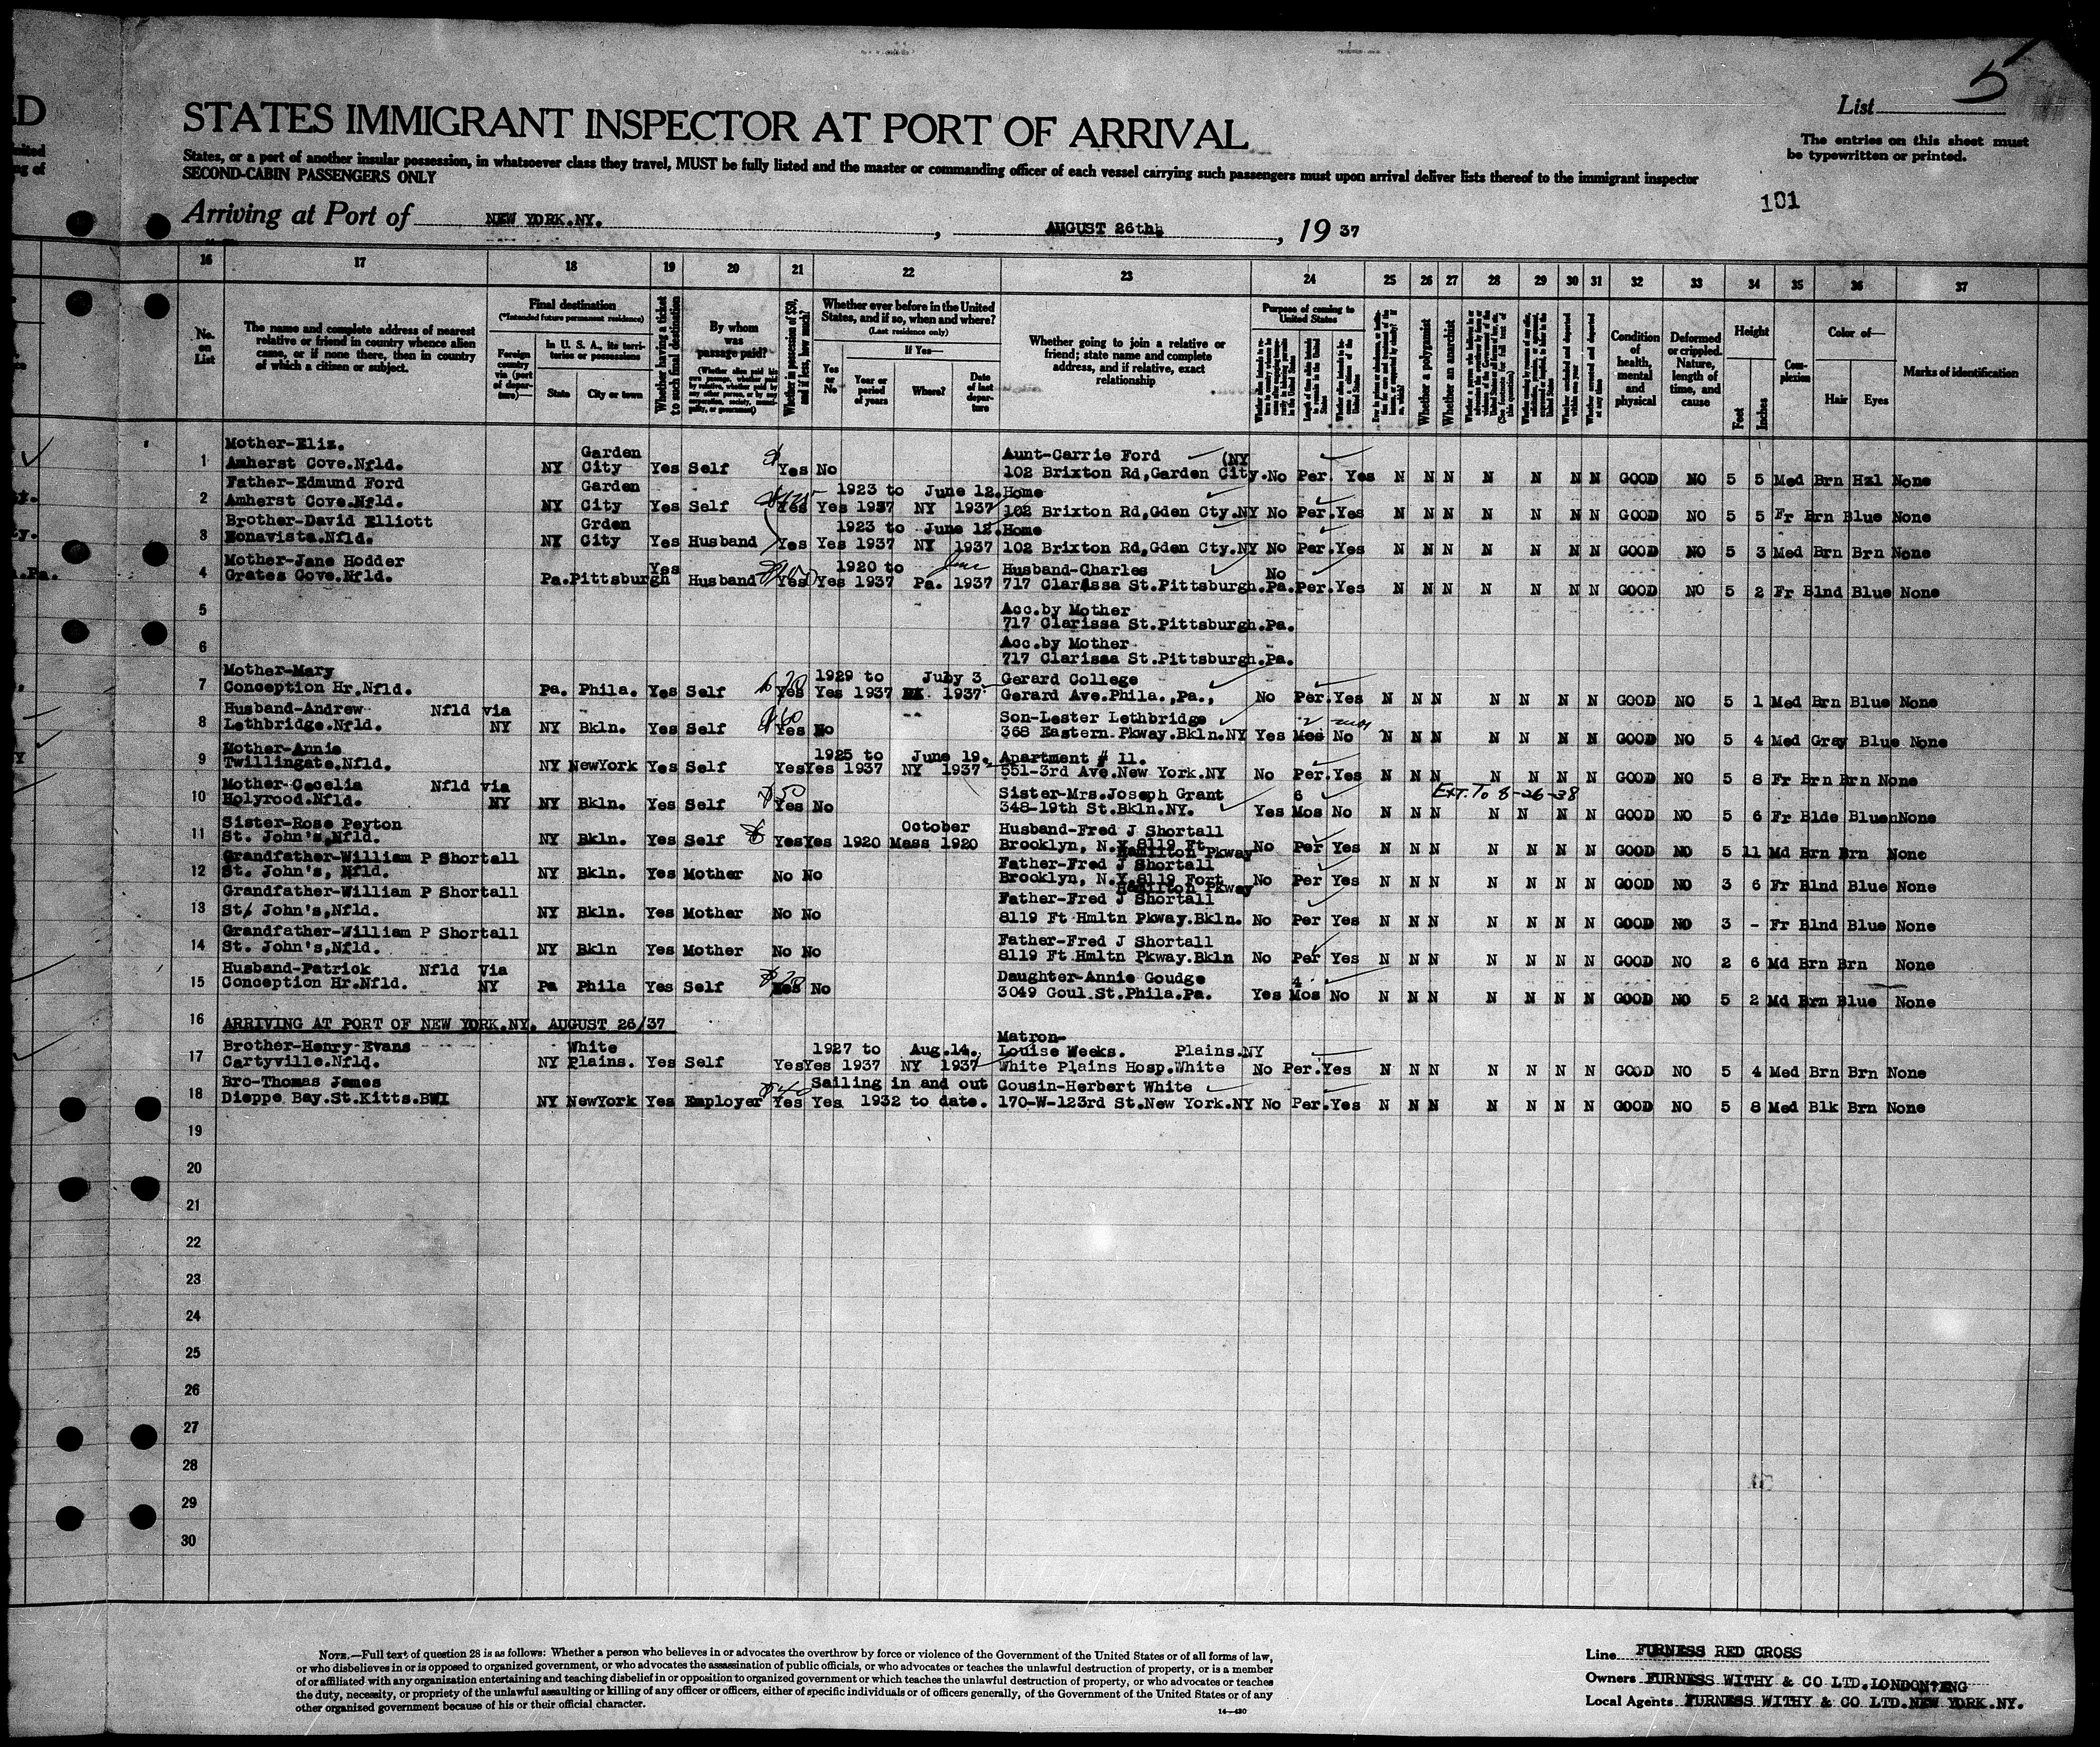 D
List 5
STATES IMMIGRANT INSPECTOR AT PORT OF ARRIVAL
The entries on this sheet must
be typewritten or printed.
States, or a port of another insular possession, in whatsoever class they travel, MUST be fully listed and the master or commanding officer of each vessel carrying such passengers must upon arrival deliver lists thereof to the immigrant inspector
SECOND-CABIN PASSENGERS ONLY
101
Arriving at Port of NEW YORK.NY. , AUGUST 26th, , 19 37
16 17 18 19 20 21 22 23 24 25 26 27 28 29 30 31 32 33 34 35 36 37
No. on List
The name and complete address of nearest
relative or friend in country whence alien
came, or if none there, then in country
of which a citizen or subject.
Final destination
(*Intended future permanent residence)
Foreign country via (port of departure)—
In U. S. A., its territories or possessions
State
City or town
Whether having a ticket to such final destination
By whom was passage paid?
(Whether alien paid his own passage, whether paid by relative, whether paid by any other person, or by any corporation, society, municipality, or government)
Whether in possession of $50, and if less, how much?
Whether ever before in the United
States, and if so, when and where?
(Last residence only)
Yes or No
If Yes—
Year or period of years
Where?
Date of last departure
Whether going to join a relative or
friend; state name and complete
address, and if relative, exact
relationship
Purpose of coming to United States
Whether a polygamist
Whether an anarchist
Condition of health, mental and physical
Deformed or crippled. Nature, length of time, and cause
Height
Feet
Inches
Complexion
Color of—
Hair
Eyes
Marks of identification
Mother-Eliz. Garden Aunt-Carrie Ford (NY
1 Amherst Cove.Nfld. NY City Yes Self Yes No 102 Brixton Rd,Garden City. No Per. Yes N N N N N N N GOOD NO 5 5 Med Brn Hzl None
Father-Edmund Ford Garden 1923 to June 12. Home
2 Amherst Cove.Nfld. NY City Yes Self Yes Yes 1937 NY 1937 102 Brixton Rd,Gden Cty.NY No Per.Yes N N N N N N N GOOD NO 5 5 Fr Brn Blue None
Brother-David Elliott Grden 1923 to June 12. Home
3 Bonavista.Nfld. NY City Yes Husband Yes Yes 1937 NY 1937 102 Brixton Rd,Gden Cty.NY No Per.Yes N N N N N N N GOOD NO 5 3 Med Brn Brn None
Mother-Jane Hodder Yes 1920 to June Husband-Charles No
4 Grates Cove.Nfld. Pa.Pittsburgh Husband Yes Yes 1937 Pa. 1937 717 Clarissa St.Pittsburgh.Pa.Per.Yes N N N N N N N GOOD NO 5 2 Fr Blnd Blue None
5 Acc.by Mother
717 Clarissa St.Pittsburgh.Pa.
6 Acc.by Mother
717 Clarissa St.Pittsburgh.Pa.
Mother-Mary 1929 to July 3 Gerard College
7 Conception Hr.Nfld. Pa. Phila. Yes Self Yes Yes 1937 1937 Gerard Ave.Phila.,Pa., No Per.Yes N N N N N N N GOOD NO 5 1 Med Brn Blue None
Husband-Andrew Nfld via $60 Son-Lester Lethbridge 2 mos
8 Lethbridge.Nfld. NY NY Bkln. Yes Self Yes No 368 Eastern Pkway.Bkln.NY Yes Mos No N N N N N N N GOOD NO 5 4 Med Gray Blue None
Mother-Annie 1925 to June 19. Apartment # 11.
9 Twillingate.Nfld. NY NewYork Yes Self Yes Yes 1937 NY 1937 551-3rd Ave.New York.NY No Per.Yes N N N N N N N GOOD NO 5 8 Fr Brn Brn None
Mother-Cecelia Nfld via $50 Sister-Mrs.Joseph Grant 6 Ext. To 8-26-38
10 Holyrood.Nfld. NY NY Bkln. Yes Self Yes No 348-19th St.Bkln.NY. Yes Mos No N N N N N N N GOOD NO 5 6 Fr Blde Blue None
Sister-Rose Peyton October Husband-Fred J Shortall
11 St. John's,Nfld. NY Bkln. Yes Self Yes Yes 1920 Mass 1920 Brooklyn, N.Y.8119 Ft Hamilton Pkway No Per Yes N N N N N N N GOOD NO 5 11 Md Brn Brn None
Grandfather-William P Shortall Father-Fred J Shortall
12 St. John's, Nfld. NY Bkln. Yes Mother No No Brooklyn, N.Y.8119 Fort Hamilton Pkway No Per Yes N N N N N N N GOOD NO 3 6 Fr Blnd Blue None
Grandfather-William P Shortall Father-Fred J Shortall
13 St/ John's,Nfld. NY Bkln. Yes Mother No No 8119 Ft Hmltn Pkway.Bkln. No Per Yes N N N N N N N GOOD NO 3 - Fr Blnd Blue None
Grandfather-William P Shortall Father-Fred J Shortall
14 St. John's,Nfld. NY Bkln Yes Mother No No 8119 Ft Hmltn Pkway.Bkln No Per Yes N N N N N N N GOOD NO 2 6 Md Brn Brn None
Husband-Patrick Nfld Via Daughter-Annie Goudge 4
15 Conception Hr.Nfld. NY Pa Phila Yes Self Yes No 3049 Goul.St.Phila.Pa. Yes Mos No N N N N N N N GOOD NO 5 2 Md Brn Blue None
16 ARRIVING AT PORT OF NEW YORK.NY. AUGUST 26/37
Matron-
Brother-Henry Evans White 1927 to Aug.14. Louise Weeks. Plains.NY
17 Cartyville.Nfld. NY Plains. Yes Self Yes Yes 1937 NY 1937 White Plains Hosp.White No Per.Yes N N N N N N N GOOD NO 5 4 Med Brn Brn None
Bro-Thomas James Sailing in and out Cousin-Herbert White
18 Dieppe Bay.St.Kitts.BWI NY NewYork Yes Employer Yes Yes 1932 to date. 170-W-123rd St.New York.NY No Per.Yes N N N N N N N GOOD NO 5 8 Med Blk Brn None
19
20
21
22
23
24
25
26
27
28
29
30
NOTE.—Full text of question 28 is as follows: Whether a person who believes in or advocates the overthrow by force or violence of the Government of the United States or of all forms of law,
or who disbelieves in or is opposed to organized government, or who advocates the assassination of public officials, or who advocates or teaches the unlawful destruction of property, or is a member
of or affiliated with any organization entertaining and teaching disbelief in or opposition to organized government or which teaches the unlawful destruction of property, or who advocates or teaches
the duty, necessity, or propriety of the unlawful assaulting or killing of any officer or officers, either of specific individuals or of officers generally, of the Government of the United States or of any
other organized government because of his or their official character.
14—430
Line FURNESS RED CROSS
Owners FURNESS WITHY & CO LTD.LONDON.ENG
Local Agents FURNESS WITHY & CO LTD.NEW YORK.NY.